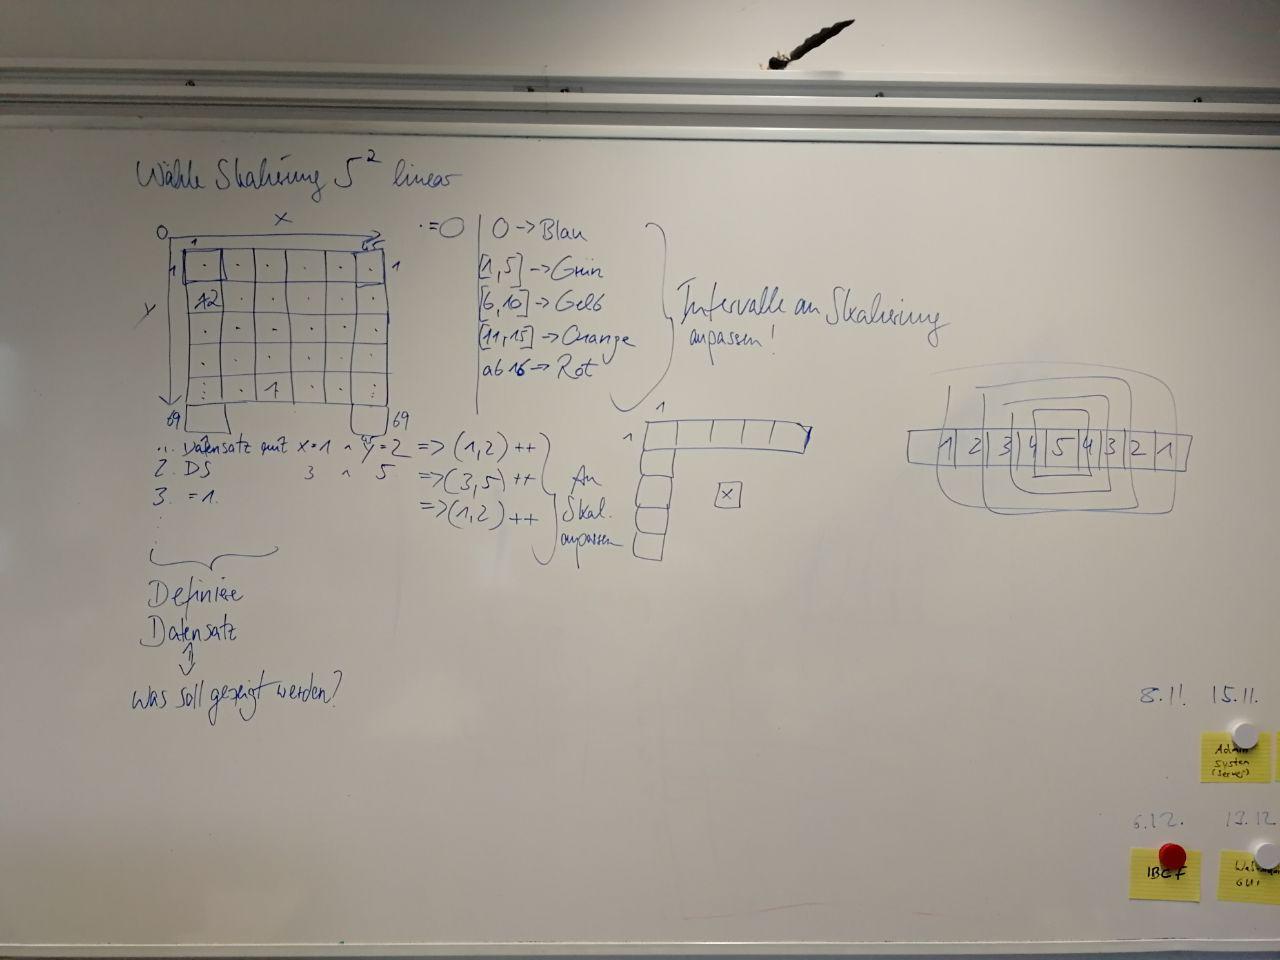 Wähle Skalierung 5² linear
x
0
1
1
1
y
12
1
69
69
·=0
0 -> Blau
[1,5] -> Grün
[6,10] -> Gelb
[11,15] -> Orange
ab 16 -> Rot
Intervalle an Skalierung
anpassen!
Datensatz mit x=1 ^ y=2 => (1,2) ++
2. DS 3 ^ 5 => (3,5) ++
3. =1. => (1,2) ++
An
Skal.
anpassen
Definiere
Datensatz
Was soll gezeigt werden?
1
1
x
1 2 3 4 5 4 3 2 1
8.11. 15.11.
Admin
System
(Server)
6.12. 13.12.
IBCF
GUI